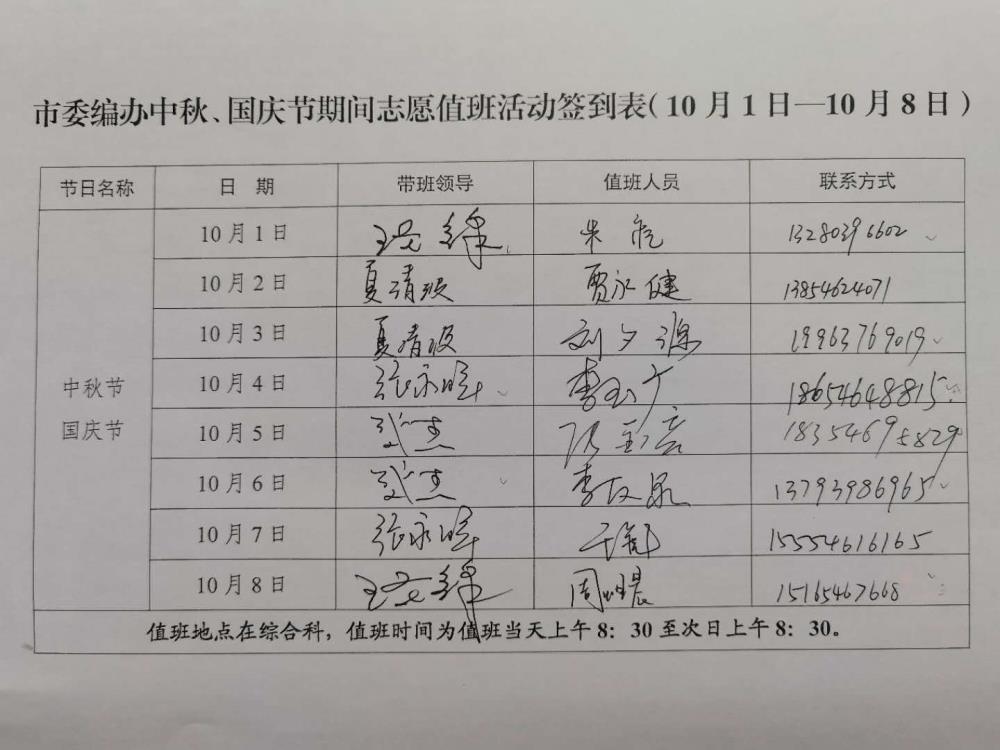 市委编办中秋、国庆节期间志愿值班活动签到表(10月1日—10月8日)
节日名称 日 期 带班领导 值班人员 联系方式
中秋节
国庆节
10月1日 13280396602
10月2日 夏清波 贾永健 13854624071
10月3日 夏清波 刘夕 19963769019
10月4日 张永晖 李玉广 18654648815
10月5日 杰 18354695829
10月6日 杰 李 13793986965
10月7日 张永晖 15554616165
10月8日 周 晨 15165467668
值班地点在综合科，值班时间为值班当天上午8：30至次日上午8：30。